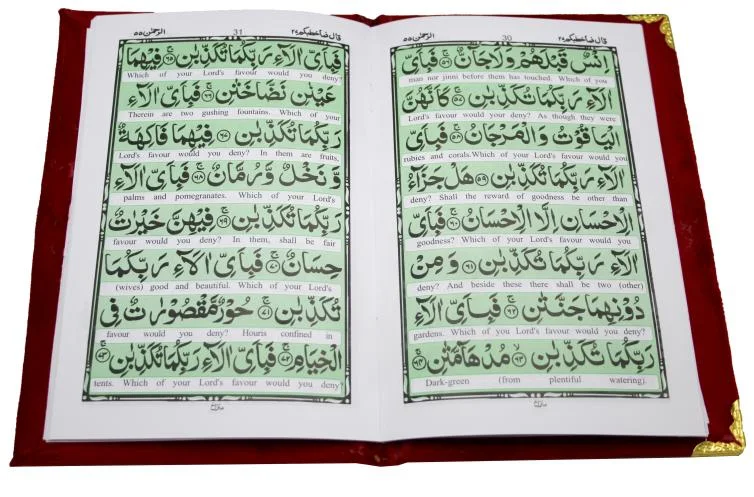 الرحمٰن ۵۵
30
قال فما خطبکم ۲۷
اِنْسٌ قَبْلَهُمْ وَلَا جَآنٌّ ۚ ﴿۵۶﴾ فَبِاَیِّ
man nor jinni before them has touched. Which of you
اٰلَآءِ رَبِّكُمَا تُكَذِّبٰنِ ۚ ﴿۵۷﴾ كَاَنَّهُنَّ
Lord's favour would your deny? As though they were
الْیَاقُوْتُ وَالْمَرْجَانُ ۚ ﴿۵۸﴾ فَبِاَیِّ
rubies and corals.Which of your Lord's favour would you
اٰلَآءِ رَبِّكُمَا تُكَذِّبٰنِ ﴿۵۹﴾ هَلْ جَزَآءُ
deny? Shall the reward of goodness be other than
الْاِحْسَانِ اِلَّا الْاِحْسَانُ ۚ ﴿۶۰﴾ فَبِاَیِّ
goodness? Which of your Lord's favour would you
اٰلَآءِ رَبِّكُمَا تُكَذِّبٰنِ ﴿۶۱﴾ وَمِنْ
deny? And beside these there shall be two (other)
دُوْنِهِمَا جَنَّتٰنِ ۚ ﴿۶۲﴾ فَبِاَیِّ اٰلَآءِ
gardens. Which of you Lord's favour would you deny?
رَبِّكُمَا تُكَذِّبٰنِ ۙ ﴿۶۳﴾ مُدْهَآمَّتٰنِ ۚ ﴿۶۴﴾
Dark-green (from plentiful watering).
الرحمٰن ۵۵
31
قال فما خطبکم ۲۷
فَبِاَیِّ اٰلَآءِ رَبِّكُمَا تُكَذِّبٰنِ ۚ ﴿۶۵﴾ فِیْهِمَا
Which of your Lord's favour would you deny?
عَیْنٰنِ نَضَّاخَتٰنِ ۚ ﴿۶۶﴾ فَبِاَیِّ اٰلَآءِ
Therein are two gushing fountains. Which of your
رَبِّكُمَا تُكَذِّبٰنِ ﴿۶۷﴾ فِیْهِمَا فَاكِهَةٌ
Lord's favour would you deny? In them are fruits,
وَّنَخْلٌ وَّرُمَّانٌ ۚ ﴿۶۸﴾ فَبِاَیِّ اٰلَآءِ
palms and pomegranates. Which of your Lord's
رَبِّكُمَا تُكَذِّبٰنِ ۚ ﴿۶۹﴾ فِیْهِنَّ خَیْرٰتٌ
favour would you deny? In them, shall be fair
حِسَانٌ ۚ ﴿۷۰﴾ فَبِاَیِّ اٰلَآءِ رَبِّكُمَا
(wives) good and beautiful. Which of your Lord's
تُكَذِّبٰنِ ۚ ﴿۷۱﴾ حُوْرٌ مَّقْصُوْرٰتٌ فِی
favour would you deny? Houris confined in
الْخِیَامِ ۚ ﴿۷۲﴾ فَبِاَیِّ اٰلَآءِ رَبِّكُمَا تُكَذِّبٰنِ ۚ ﴿۷۳﴾
tents. Which of your Lord's favour would you deny?